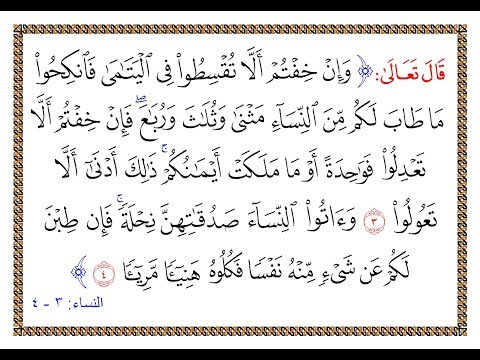 قَالَ تَعَالَىٰ: ﴿ وَإِنْ خِفْتُمْ أَلَّا تُقْسِطُوا۟ فِى ٱلْيَتَـٰمَىٰ فَٱنكِحُوا۟
مَا طَابَ لَكُم مِّنَ ٱلنِّسَآءِ مَثْنَىٰ وَثُلَـٰثَ وَرُبَـٰعَ ۖ فَإِنْ خِفْتُمْ أَلَّا
تَعْدِلُوا۟ فَوَٰحِدَةً أَوْ مَا مَلَكَتْ أَيْمَـٰنُكُمْ ۚ ذَٰلِكَ أَدْنَىٰٓ أَلَّا
تَعُولُوا۟ ٣ وَءَاتُوا۟ ٱلنِّسَآءَ صَدُقَـٰتِهِنَّ نِحْلَةً ۚ فَإِن طِبْنَ
لَكُمْ عَن شَىْءٍ مِّنْهُ نَفْسًا فَكُلُوهُ هَنِيٓـًٔا مَّرِيٓـًٔا ٤ ﴾
النساء: ٣ - ٤